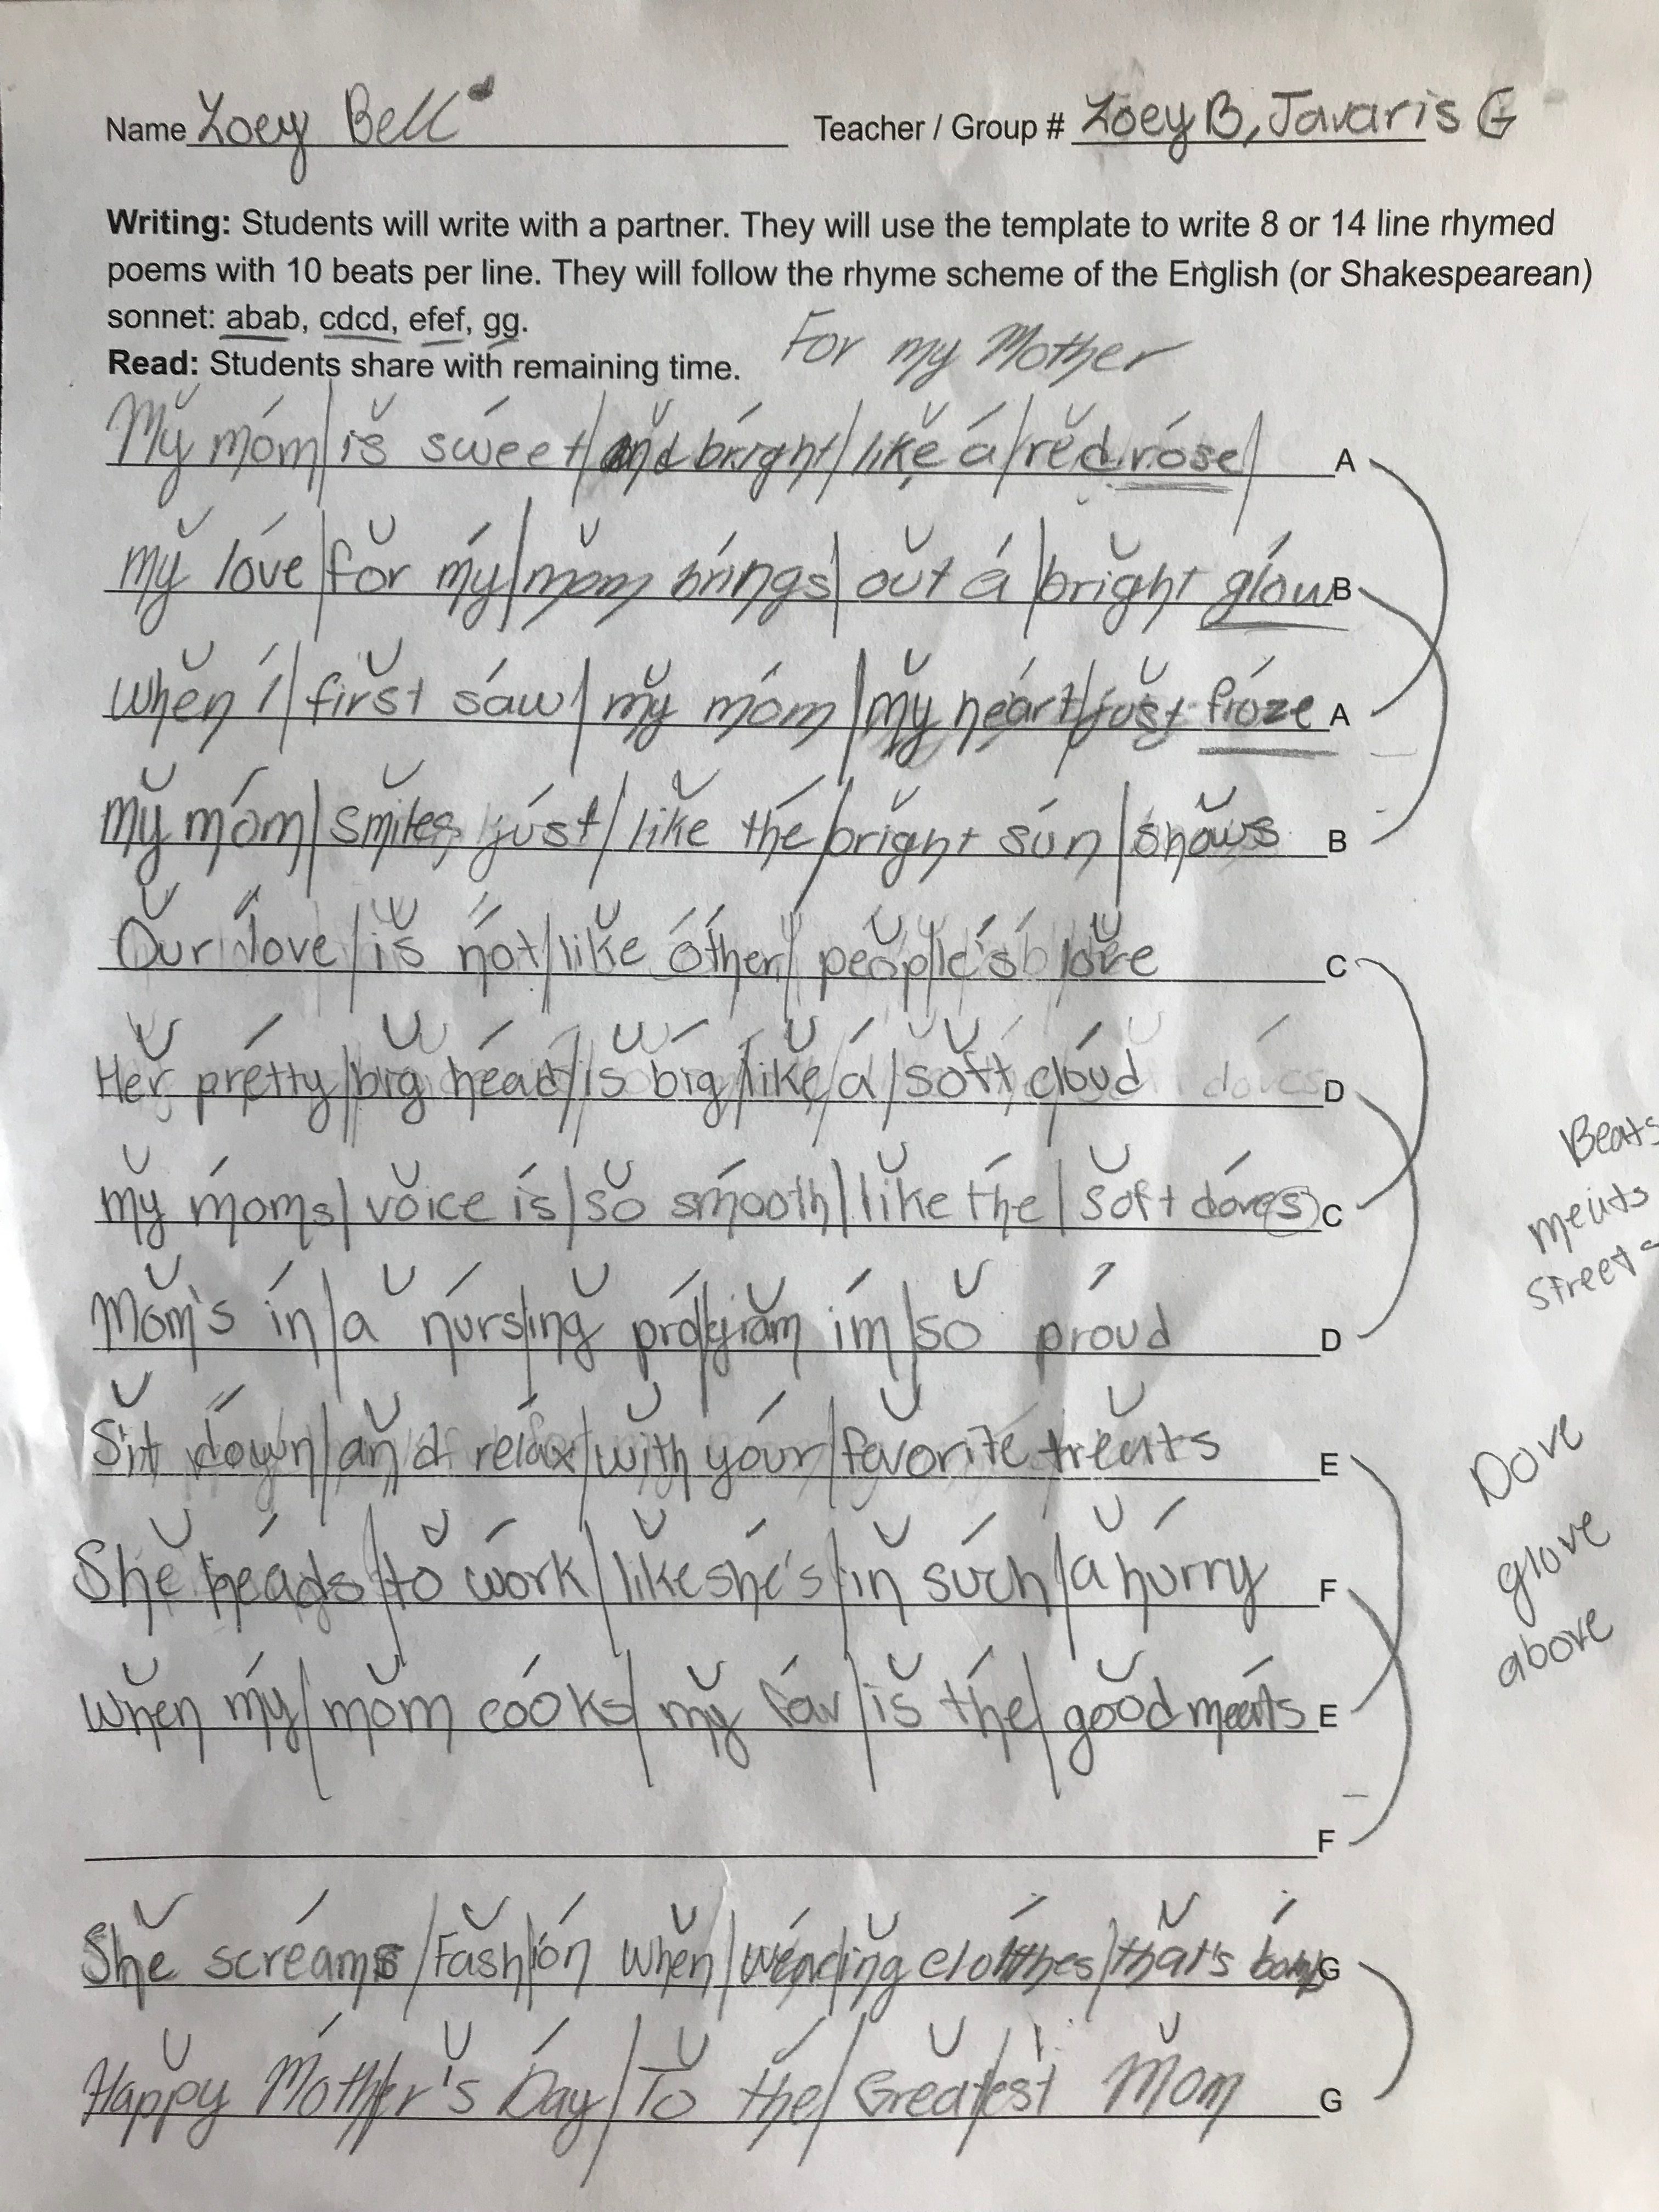 Name Zoey Bell Teacher / Group # Zoey B, Javaris G
Writing: Students will write with a partner. They will use the template to write 8 or 14 line rhymed
poems with 10 beats per line. They will follow the rhyme scheme of the English (or Shakespearean)
sonnet: abab, cdcd, efef, gg.
Read: Students share with remaining time.
For my Mother
My mom/is sweet/and bright/like a/red rose/ A
my love/for my/mom brings/out a/bright glow B
when I/first saw/my mom/my heart/just froze A
my mom/smiles just/like the/bright sun/shows B
Our love/is not/like other/people's love C
Her pretty/big head/is big/like a/soft cloud doves D
my moms/voice is/so smooth/like the/soft doves C
Mom's in/a nurs/ing pro/gram im/so proud D
Sit down/and relax/with your/favorite treats E
She heads/to work/like she's/in such/a hurry F
when my/mom cooks/my fav/is the/good meats E
F
She screams/Fash/ion when/wearing clothes/that's bomb G
Happy Mother's Day/To the/Greatest Mom G
Beats
meats
street
Dove
glove
above